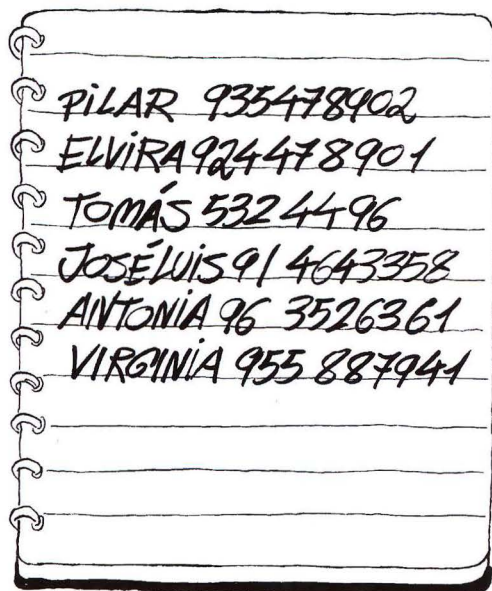 PiLAR 935478902
ELViRA 924478901
TOMÁS 5324496
JOSÉ LUiS 91 4643358
ANTONiA 96 3526361
VIRGINiA 955 887941